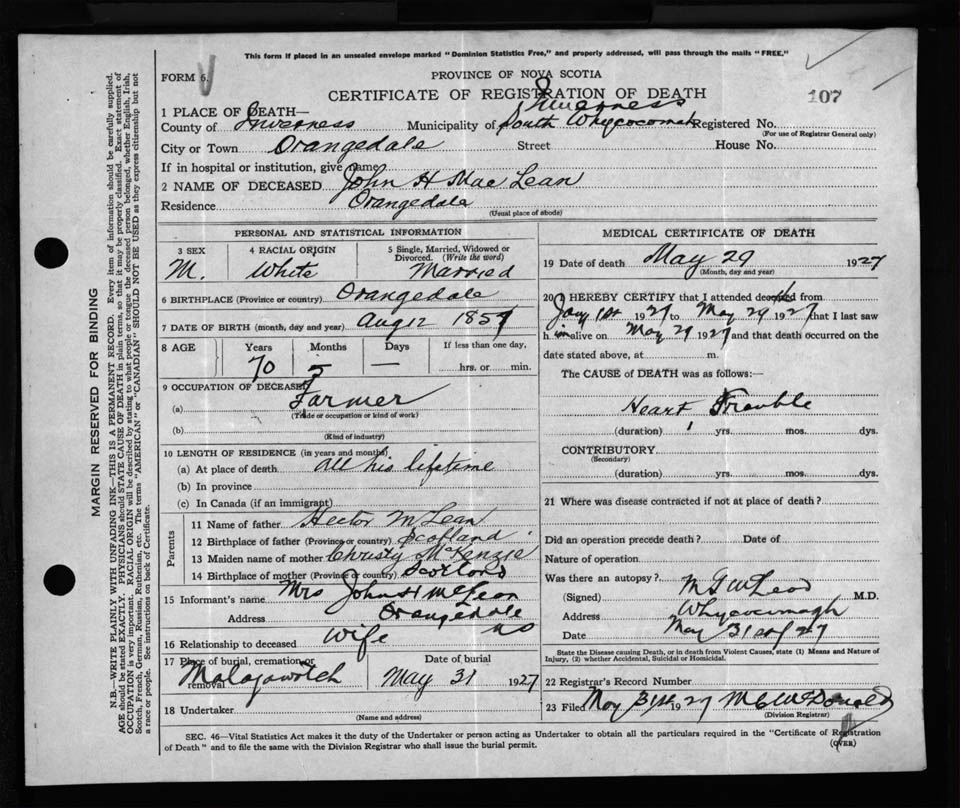 This form if placed in an unsealed envelope marked "Dominion Statistics Free," and properly addressed, will pass through the mails "FREE."
FORM 6.
PROVINCE OF NOVA SCOTIA
CERTIFICATE OF REGISTRATION OF DEATH
107
1 PLACE OF DEATH—
Inverness
County of Inverness Municipality of South Whycocomah Registered No.
(For use of Registrar General only)
City or Town Orangedale Street House No.
If in hospital or institution, give name
2 NAME OF DECEASED John H Mac Lean
Residence Orangedale
(Usual place of abode)
PERSONAL AND STATISTICAL INFORMATION
3 SEX 4 RACIAL ORIGIN 5 Single, Married, Widowed or Divorced. (Write the word)
M. White Married
6 BIRTHPLACE (Province or country) Orangedale
7 DATE OF BIRTH (month, day and year) Aug 12 1857
8 AGE Years Months Days If less than one day,
70 5 — hrs. or min.
9 OCCUPATION OF DECEASED
(a) Farmer
(Trade or occupation or kind of work)
(b)
(Kind of industry)
10 LENGTH OF RESIDENCE (in years and months)
(a) At place of death all his lifetime
(b) In province
(c) In Canada (if an immigrant)
Parents
11 Name of father Hector McLean
12 Birthplace of father (Province or country) Scotland
13 Maiden name of mother Christy McKenzie
14 Birthplace of mother (Province or country) Scotland
15 Informant's name Mrs John H McLean
Address Orangedale
NS
16 Relationship to deceased Wife
17 Place of burial, cremation or removal Date of burial
Malagawatch May 31 1927
18 Undertaker
(Name and address)
MEDICAL CERTIFICATE OF DEATH
19 Date of death May 29 1927
(Month, day and year)
20 I HEREBY CERTIFY that I attended deceased from
Jany 1st 1927 to May 29 1927 that I last saw
him alive on May 29 1927 and that death occurred on the
date stated above, at m.
The CAUSE of DEATH was as follows:—
Heart Trouble
(duration) 1 yrs. mos. dys.
CONTRIBUTORY
(Secondary)
(duration) yrs. mos. dys.
21 Where was disease contracted if not at place of death?
Did an operation precede death? Date of
Nature of operation
Was there an autopsy?
(Signed) McLeod M.D.
Address Whycocomagh
Date May 31st 27
State the Disease causing Death, or in death from Violent Causes, state (1) Means and Nature of
Injury, (2) whether Accidental, Suicidal or Homicidal.
22 Registrar's Record Number
23 Filed May 31st 1927 McDonald
(Division Registrar)
SEC. 46—Vital Statistics Act makes it the duty of the Undertaker or person acting as Undertaker to obtain all the particulars required in the "Certificate of Registration
of Death" and to file the same with the Division Registrar who shall issue the burial permit.
(OVER)
MARGIN RESERVED FOR BINDING
N.B.—WRITE PLAINLY WITH UNFADING INK—THIS IS A PERMANENT RECORD. Every item of information should be carefully supplied.
AGE should be stated EXACTLY. PHYSICIANS should STATE CAUSE OF DEATH in plain terms, so that it may be properly classified. Exact statement of
OCCUPATION is very important. RACIAL ORIGIN will be described by stating to what people or tongue the deceased person belonged, whether English, Irish,
Scotch, French, German, Russian, Ruthenian, etc. The terms "AMERICAN" or "CANADIAN" SHOULD NOT BE USED as they express citizenship but not
a race or people. See instructions on back of Certificate.